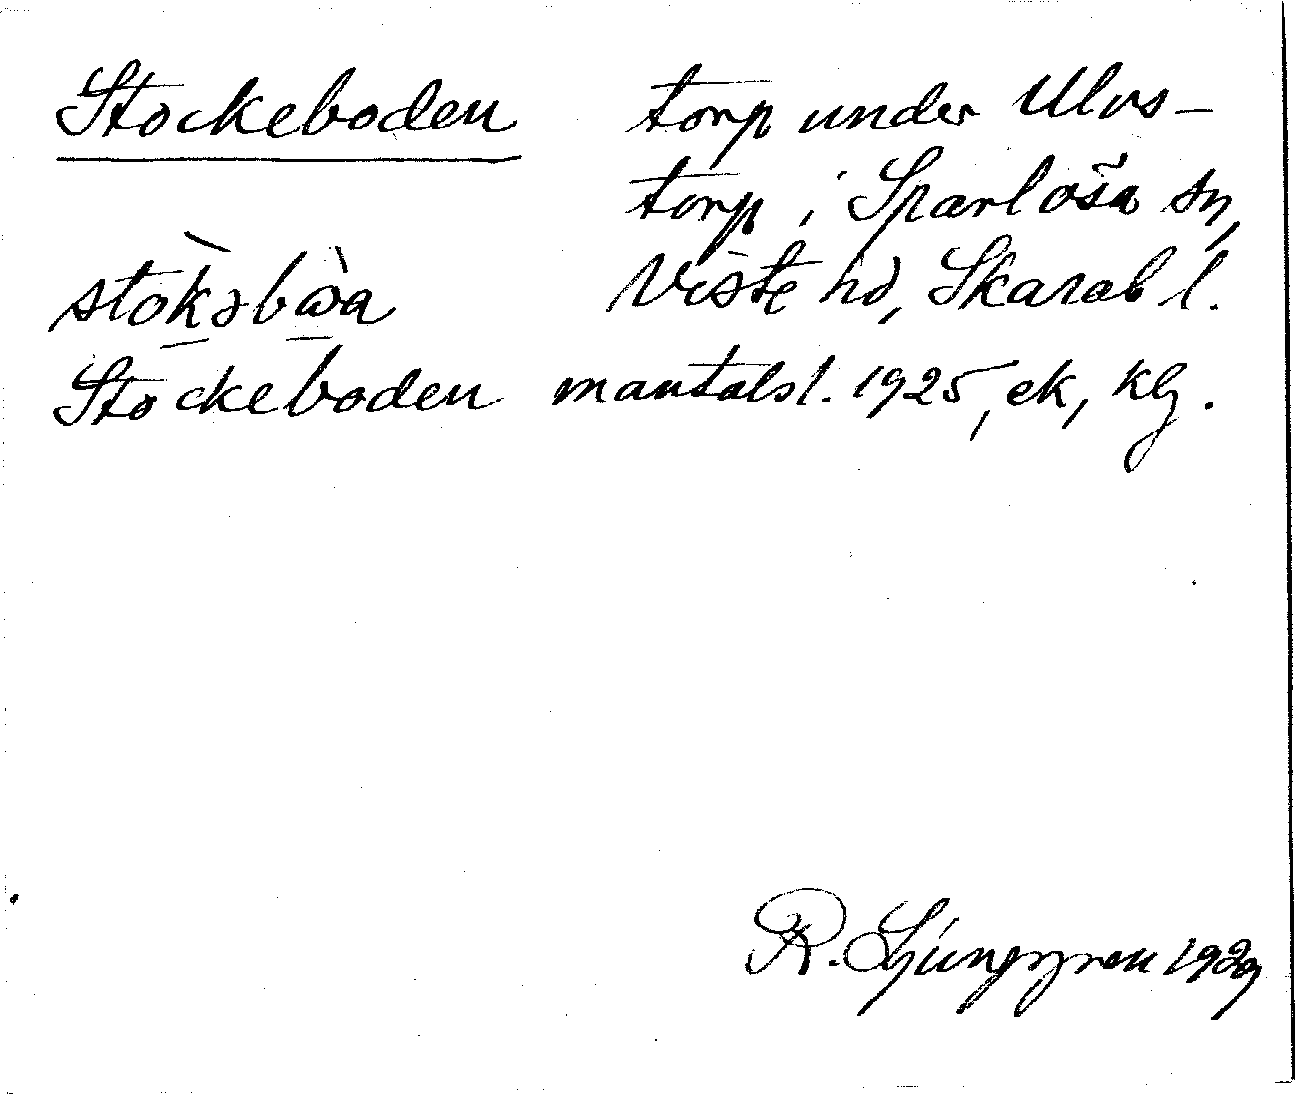 Stockeboden torp under Ulvs-
torp i Sparlösa sn,
stokəbωa Viste hd, Skarab l.
Stockeboden mantalsl. 1925, ek, klg.
R. Ljunggren 1929